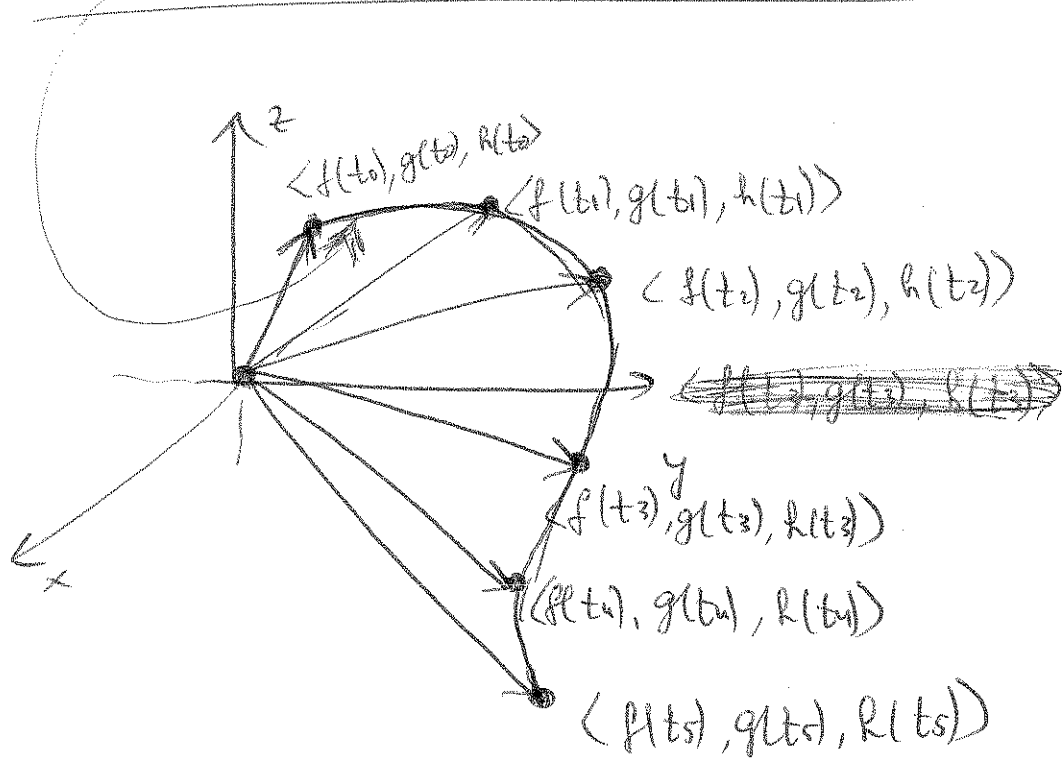 z
<f(t0), g(t0), h(t0)>
<f(t1), g(t1), h(t1)>
<f(t2), g(t2), h(t2)>
<f(t3), g(t3), h(t3)>
y
<f(t3), g(t3), h(t3)>
x
<f(t4), g(t4), h(t4)>
<f(t5), g(t5), h(t5)>